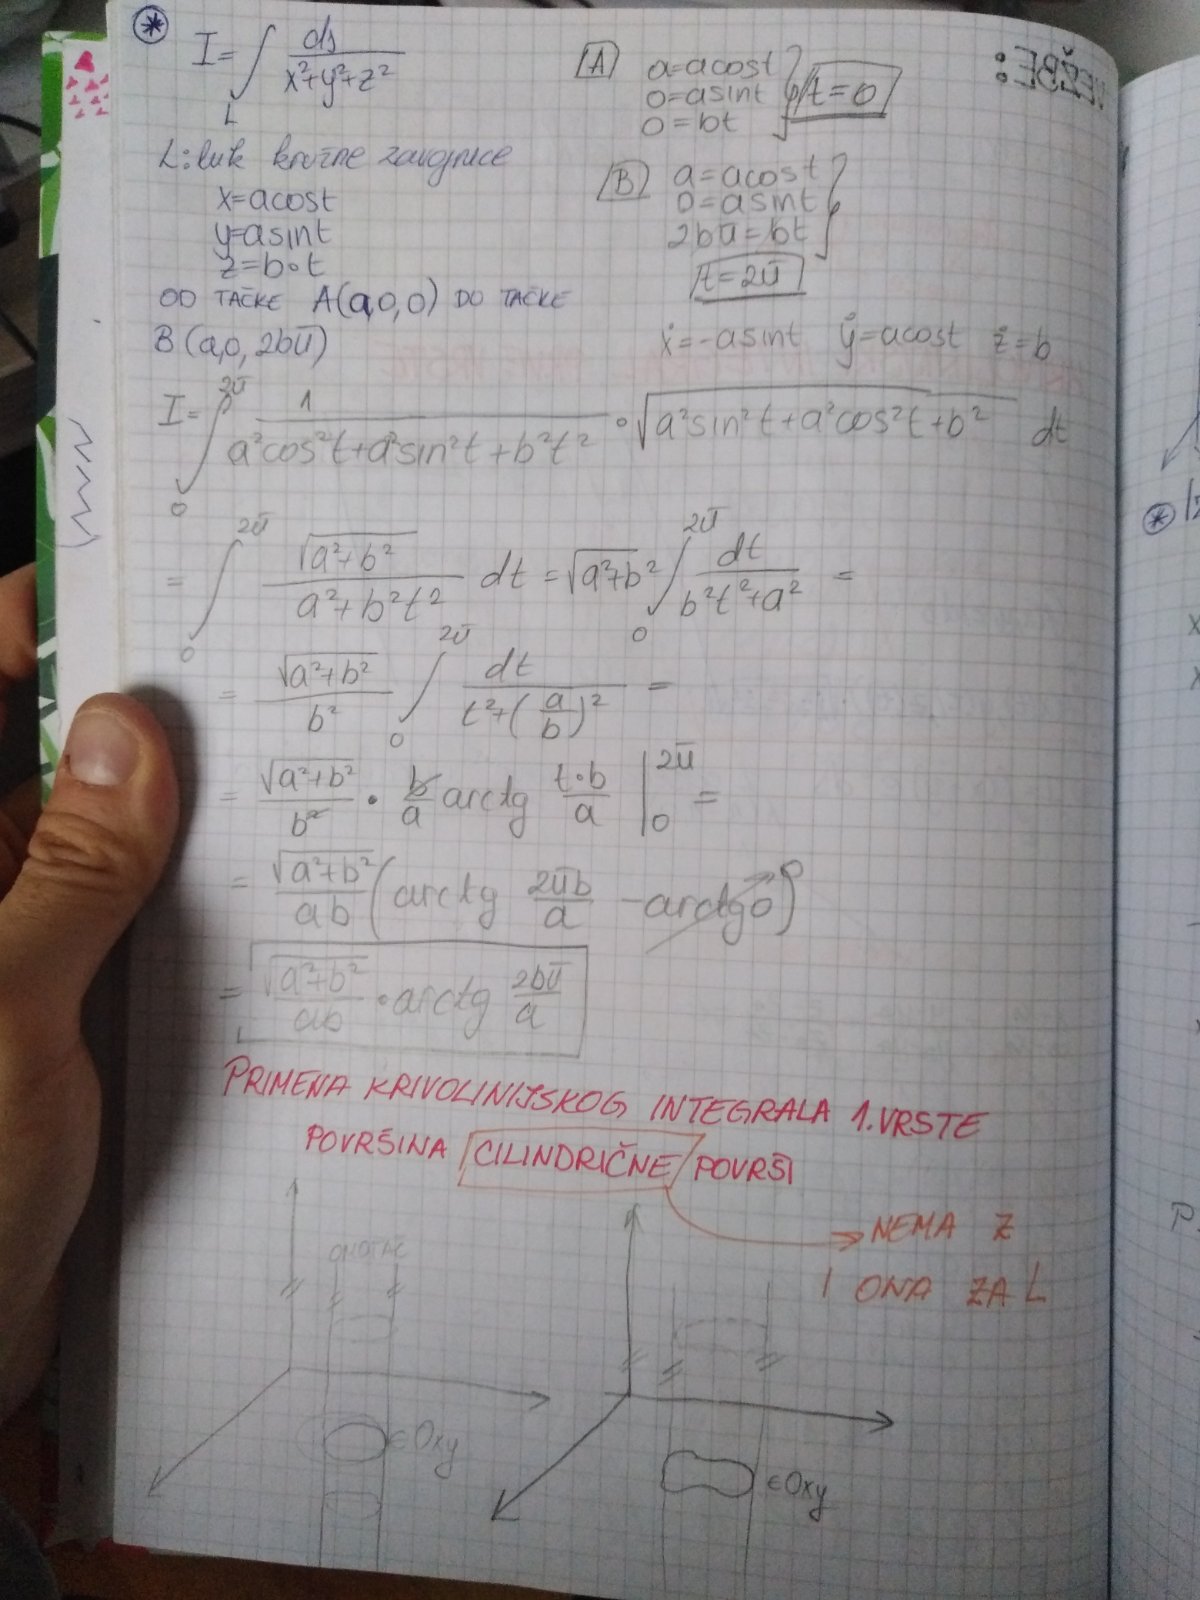 I = ∫_L ds/(x²+y²+z²)
L: luk kružne zavojnice
x=acost
y=asint
z=b·t
OD TAČKE A(a,0,0) DO TAČKE
B(a,0,2bπ)
[A] a=acost
0=asint
0=bt
t=0
[B] a=acost
0=asint
2bπ=bt
t=2π
ẋ=-asint ẏ=acost ż=b
I = ∫_0^{2π} 1/(a²cos²t+a²sin²t+b²t²) · √(a²sin²t+a²cos²t+b²) dt
= ∫_0^{2π} √(a²+b²)/(a²+b²t²) dt = √(a²+b²) ∫_0^{2π} dt/(b²t²+a²) =
= √(a²+b²)/b² ∫_0^{2π} dt/(t²+(a/b)²) =
= √(a²+b²)/b² · b/a arctg t·b/a |_0^{2π} =
= √(a²+b²)/ab (arctg 2πb/a - arctg0)
= √(a²+b²)/ab · arctg 2bπ/a
PRIMENA KRIVOLINIJSKOG INTEGRALA 1. VRSTE
POVRŠINA CILINDRIČNE POVRŠI
NEMA Z
I ONA ZA L
OMOTAČ
∈Oxy
∈Oxy
VEŽBE: